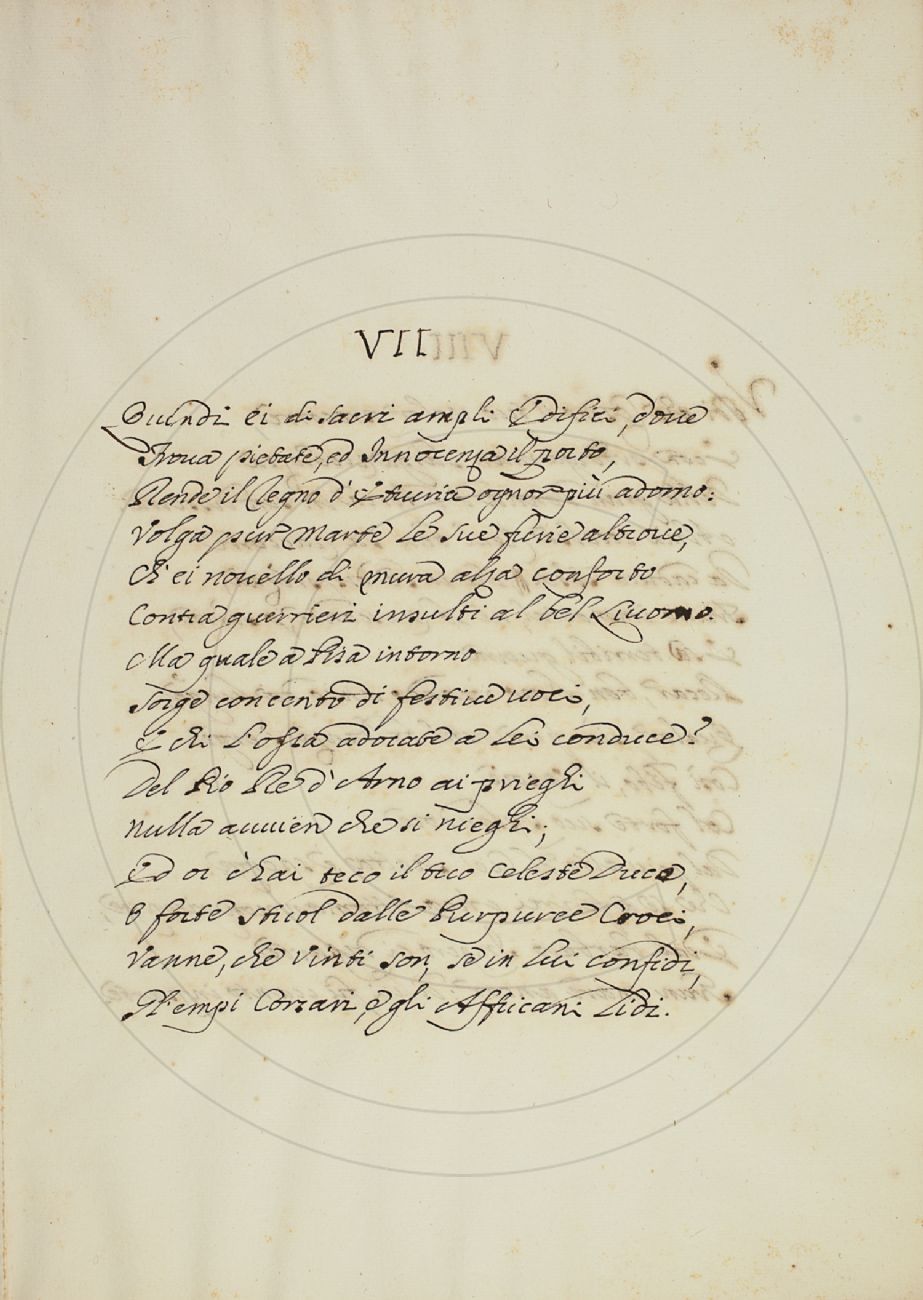 VII
Quindi ei di sacri ampli Edifici, doue
Troua pietate, ed Innocenza il porto,
Rende il Regno d'Etruria ognor più adorno:
Volga pur Marte le sue furie altroue,
Ch'ei nouello di mura alza conforto
Contra guerrieri insulti al bel Liuorno.
Ma quale a Pisa intorno
Sorge concento di festiue uoci,
E chi l'ossa adorate a lei conduce?
Del Pio Re d'Arno ai prieghi
Nulla auuien che si nieghi;
Ed or ch'ai teco il tuo Celeste Duce,
O forte stuol dalle Purpuree Croci,
Vanne, che vinti son, se in lui confidi,
Gl'empi Corsari, e gli Affricani Lidi.